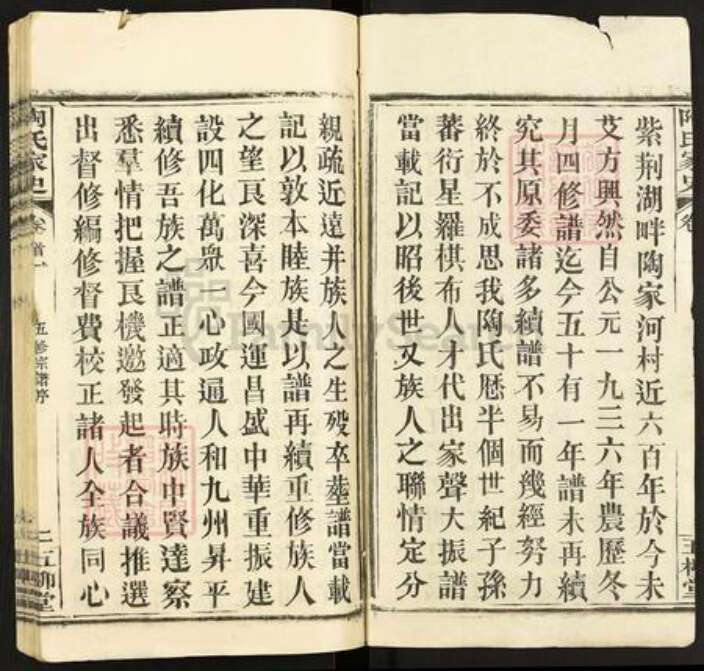 紫荆湖畔陶家河村近六百年於今未
艾方興然自公元一九三六年農歷冬
月四修譜迄今五十有一年譜未再續
究其原委諸多續譜不易而幾經努力
終於不成思我陶氏歷半個世紀子孫
蕃衍星羅棋布人才代出家聲大振譜
當載記以昭後世又族人之聯情定分
親疏近遠并族人之生殁卒塟譜當載
記以敦本睦族是以譜再續重修族人
之望良深喜今國運昌盛中華重振建
設四化萬衆一心政通人和九州昇平
續修吾族之譜正適其時族中賢達察
悉羣情把握良機邀發起者合議推選
出督修編修督費校正諸人全族同心
陶氏家史
卷首一
五修宗譜序
二五柳堂
FamilySearch